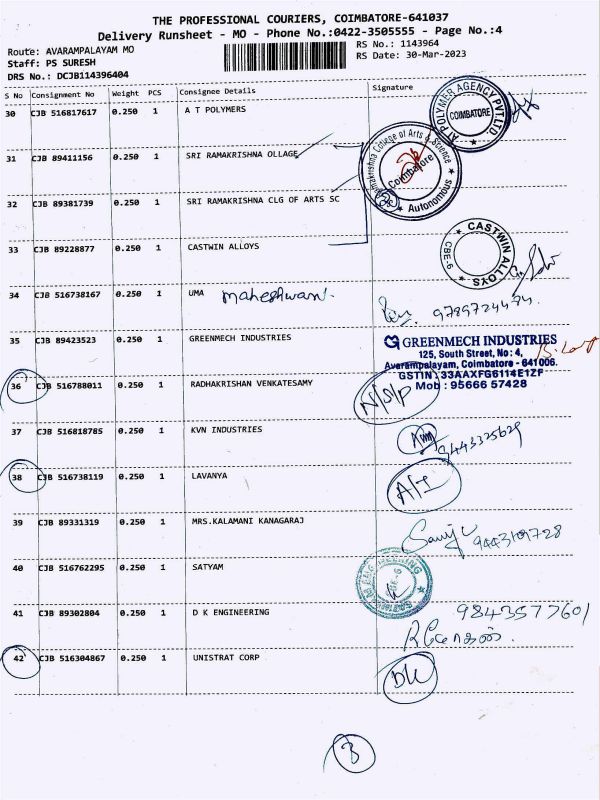 THE PROFESSIONAL COURIERS, COIMBATORE-641037
Delivery Runsheet - MO - Phone No.:0422-3505555 - Page No.:4
Route: AVARAMPALAYAM MO
RS No.: 1143964
Staff: PS SURESH
RS Date: 30-Mar-2023
DRS No.: DCJB114396404
S No Consignment No Weight PCS Consignee Details Signature
30 CJB 516817617 0.250 1 A T POLYMERS
AT POLYMER AGENCY PVT.LTD
COIMBATORE
31 CJB 89411156 0.250 1 SRI RAMAKRISHNA OLLAGE
Ramakrishna College of Arts & Science
Coimbatore
Autonomous
32 CJB 89381739 0.250 1 SRI RAMAKRISHNA CLG OF ARTS SC
33 CJB 89228877 0.250 1 CASTWIN ALLOYS
CASTWIN ALLOYS
CBE-6
34 CJB 516738167 0.250 1 UMA Maheshwari.
9789724474.
35 CJB 89423523 0.250 1 GREENMECH INDUSTRIES
GREENMECH INDUSTRIES
125, South Street, No: 4,
Avarampalayam, Coimbatore - 641006.
GSTIN: 33AAXFG6114E1ZF
Mob: 95666 57428
36 CJB 516788011 0.250 1 RADHAKRISHAN VENKATESAMY
N/S/P
37 CJB 516818785 0.250 1 KVN INDUSTRIES
9443325629
38 CJB 516738119 0.250 1 LAVANYA
A/I
39 CJB 89331319 0.250 1 MRS.KALAMANI KANAGARAJ
40 CJB 516762295 0.250 1 SATYAM
41 CJB 89302804 0.250 1 D K ENGINEERING
9843577601
42 CJB 516304867 0.250 1 UNISTRAT CORP
3